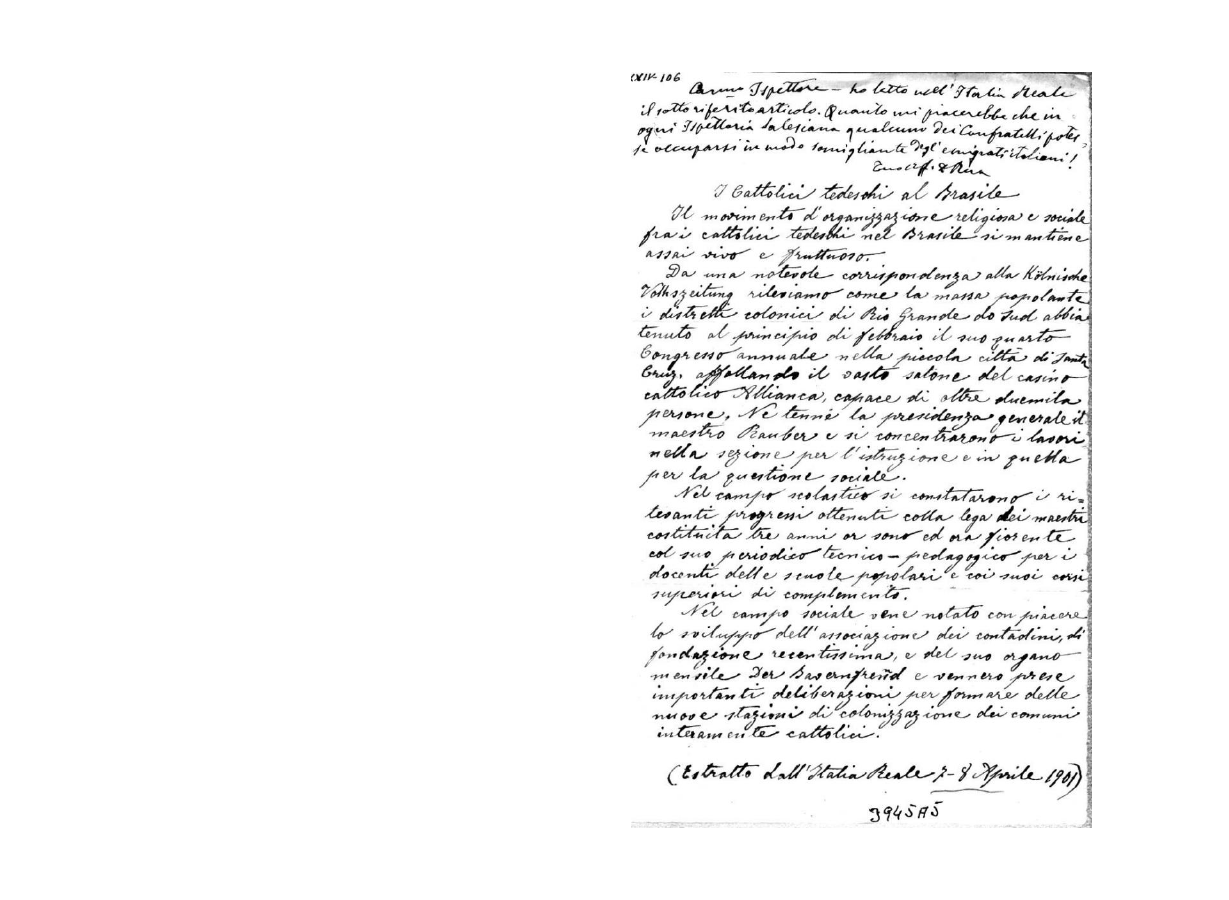 XIV-106
Car.mo Ispettore - ho letto nell'Italia Reale
il sotto riferito articolo. Quanto mi piacerebbe che in
ogni Ispettoria Salesiana qualcuno dei Confratelli potes-
se occuparsi in modo somigliante degl'emigrati italiani!
Rua
I Cattolici tedeschi al Brasile
Il movimento d'organizzazione religiosa e sociale
fra i cattolici tedeschi nel Brasile si mantiene
assai vivo e fruttuoso.
Da una notevole corrispondenza alla Kölnische
Volkszeitung rileviamo come la massa popolante
i distretti colonici di Rio Grande do Sud abbia
tenuto al principio di febbraio il suo quarto
Congresso annuale nella piccola città di Santa
Cruz, affollando il vasto salone del casino
cattolico Allianca, capace di oltre duemila
persone. Ne tenne la presidenza generale il
maestro Rauber e si concentrarono i lavori
nella sezione per l'istruzione e in quella
per la questione sociale.
Nel campo scolastico si constatarono i ri=
levanti progressi ottenuti colla lega dei maestri
costituita tre anni or sono ed ora fiorente
col suo periodico tecnico-pedagogico per i
docenti delle scuole popolari e coi suoi corsi
superiori di complemento.
Nel campo sociale vene notato con piacere
lo sviluppo dell'associazione dei contadini, di
fondazione recentissima, e del suo organo
mensile Der Bavernfreñd e vennero prese
importanti deliberazioni per formare delle
nuove stazioni di colonizzazione dei comuni
interamente cattolici.
(Estratto dall'Italia Reale 7-8 Aprile 1901)
3945A5